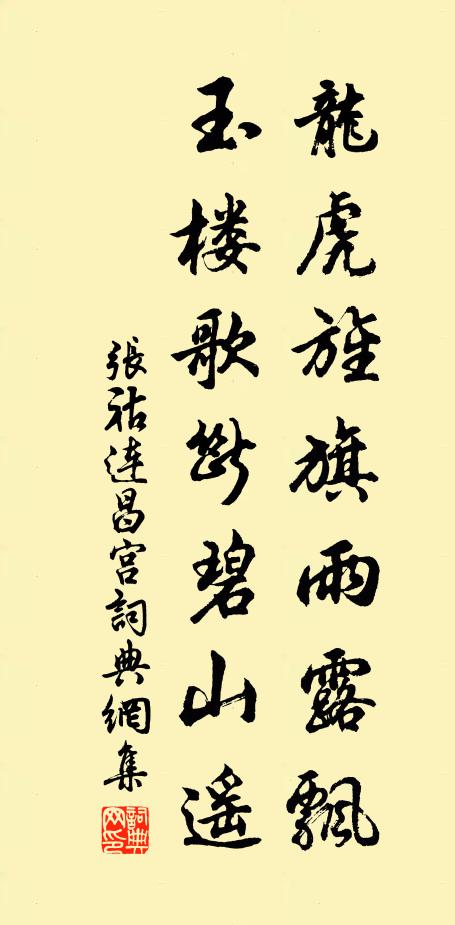 龍虎旌旗雨露飄
玉楼歌斷碧山遥
張祜連昌宫詞典網集
詞典網印